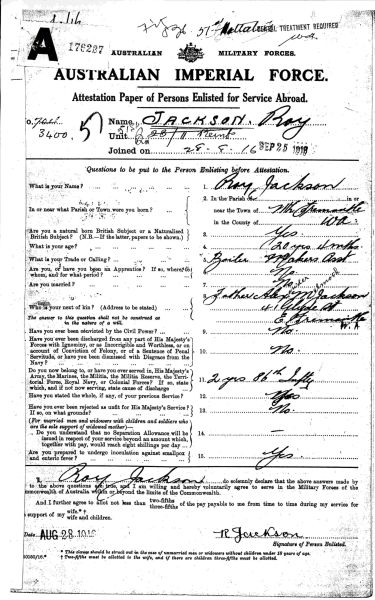 A 176227
51st Battalion
DENTAL TREATMENT REQUIRED
AUSTRALIAN MILITARY FORCES.
AUSTRALIAN IMPERIAL FORCE.
Attestation Paper of Persons Enlisted for Service Abroad.
3400
Name JACKSON. Roy
Unit 28/11 Reint
Joined on 28-8-16 SEP 25 1916
Questions to be put to the Person Enlisting before Attestation.
1. What is your Name? 1. Roy Jackson
2. In or near what Parish or Town were you born? 2. In the Parish of
near the Town of Nth Fremantle
in the County of W.A.
3. Are you a natural born British Subject or a Naturalised
British Subject? (N.B.—If the latter, papers to be shown.) 3. Yes
4. What is your age? 4. 20 yrs 4 mths
5. What is your Trade or Calling? 5. Boiler Makers Asst
6. Are you, or have you been an Apprentice? If so, where, to
whom, and for what period? 6. No
7. Are you married? 7. No
8. Who is your next of kin? (Address to be stated) 8. Father Jackson
41 Glyde St
E Fremantle
W.A.
The answer to this question shall not be construed as
in the nature of a will.
9. Have you ever been convicted by the Civil Power? 9. No.
10. Have you ever been discharged from any part of His Majesty's
Forces with Ignominy, or as Incorrigible and Worthless, or on
account of Conviction of Felony, or of a Sentence of Penal
Servitude, or have you been dismissed with Disgrace from the
Navy? 10. No.
11. Do you now belong to, or have you ever served in, His Majesty's
Army, the Marines, the Militia, the Militia Reserve, the Territorial
Force, Royal Navy, or Colonial Forces? If so, state
which, and if not now serving, state cause of discharge 11. 2 yrs 86th Inftry
12. Have you stated the whole, if any, of your previous Service? 12. Yes
13. Have you ever been rejected as unfit for His Majesty's Service?
If so, on what grounds? 13. No.
14. (For married men and widowers with children and soldiers who
are the sole support of widowed mother)—
Do you understand that no Separation Allowance will be
issued in respect of your service beyond an amount which,
together with pay, would reach eight shillings per day? 14. —
15. Are you prepared to undergo inoculation against smallpox
and enteric fever? 15. Yes
I, Roy Jackson, do solemnly declare that the above answers made by
me to the above questions are true, and I am willing and hereby voluntarily agree to serve in the Military Forces of the
Commonwealth of Australia within or beyond the limits of the Commonwealth.
And I further agree to allot not less than two-fifths three-fifths of the pay payable to me from time to time during my service for
the support of my wife.*† wife and children.
Date AUG 28 1916
R Jackson
Signature of Person Enlisted.
* This clause should be struck out in the case of unmarried men or widowers without children under 18 years of age.
† Two-fifths must be allotted to the wife, and if there are children three-fifths must be allotted.